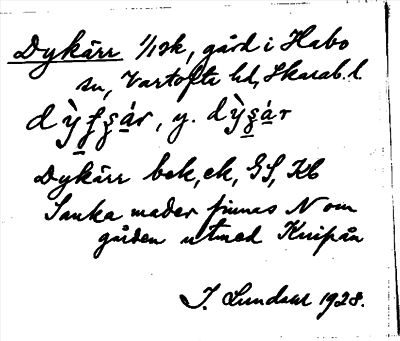 Dykärr 1/1 sk, gård i Habo
sn, Vartofta hd, Skarab. l
dỳḵs̱á̱r, y. dỳs̱á̱r
Dykärr bek, ek, GS, Kb
Sanka mader finnas N om
gården utmed Knipån
J. Lundahl 1928.